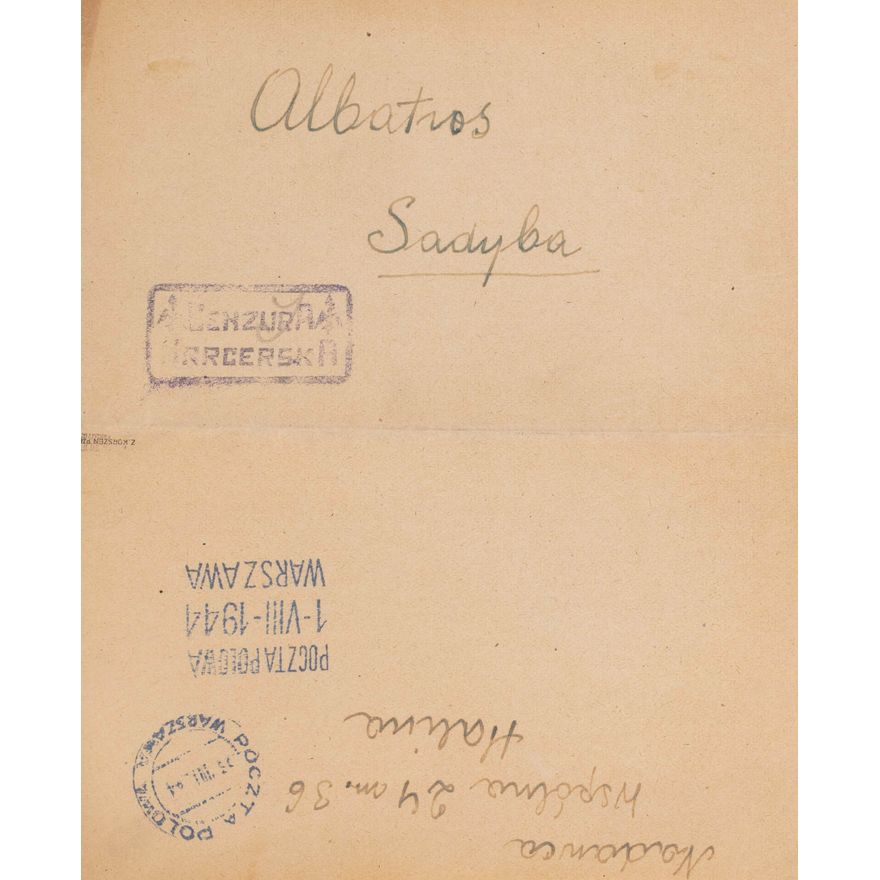 Albatros
Sadyba
CENZURA
HARCERSKA
Z KORSZEŃ
POCZTA POLOWA
1-VIII-1944
WARSZAWA
POCZTA POLOWA WARSZAWA
VIII 44
Nadawca
Wspólna 24 m. 36
Halina